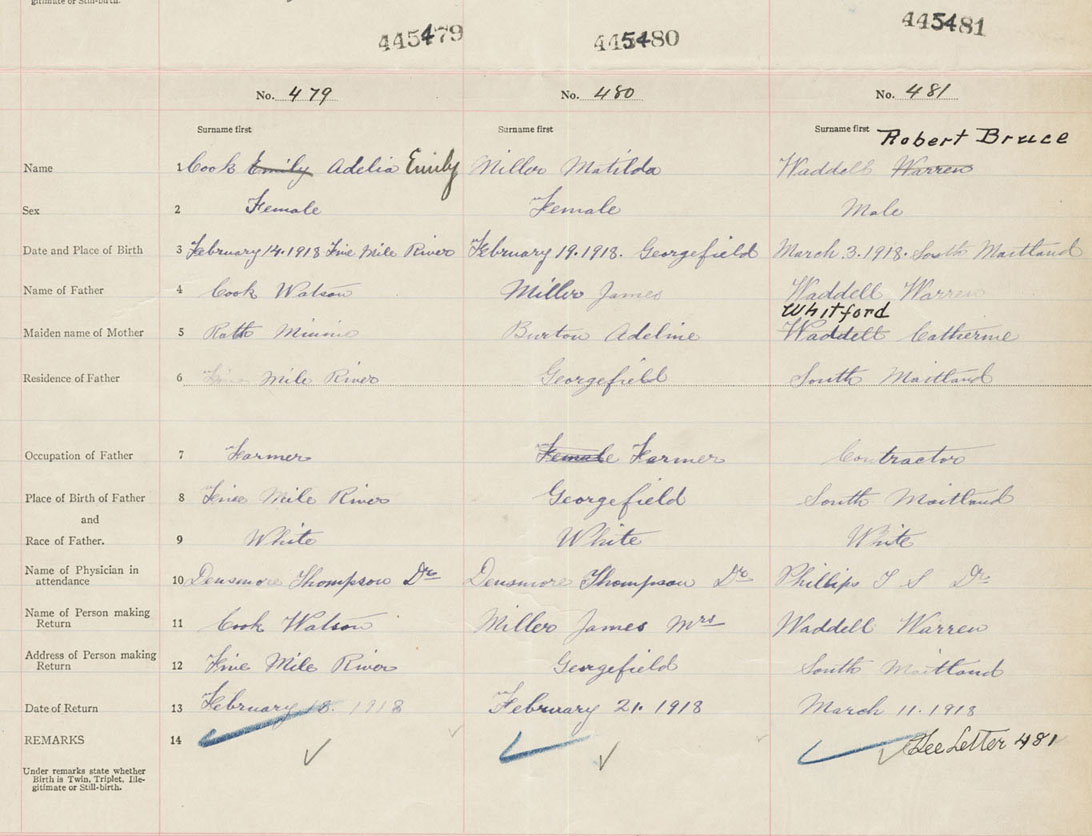 gitimate or Still-birth.
445479 445480 445481
No. 479 No. 480 No. 481
Surname first Surname first Surname first Robert Bruce
Name 1 Cook Emily Adelia Emily Miller Matilda Waddell Warren
Sex 2 Female Female Male
Date and Place of Birth 3 February 14. 1918 Five Mile River February 19. 1918. Georgefield March 3. 1918. South Maitland
Name of Father 4 Cook Watson Miller James Waddell Warren
Whitford
Maiden name of Mother 5 Roth Minnie Burton Adeline Waddell Catherine
Residence of Father 6 Five Mile River Georgefield South Maitland
Occupation of Father 7 Farmer Female Farmer Contractor
Place of Birth of Father 8 Five Mile River Georgefield South Maitland
and
Race of Father. 9 White White White
Name of Physician in
attendance 10 Densmore Thompson Dr Densmore Thompson Dr Phillips T S Dr
Name of Person making
Return 11 Cook Watson Miller James Mrs Waddell Warren
Address of Person making
Return 12 Five Mile River Georgefield South Maitland
Date of Return 13 February 18. 1918 February 21. 1918 March 11. 1918
REMARKS 14 See Letter 481
Under remarks state whether
Birth is Twin, Triplet, Ille-
gitimate or Still-birth.